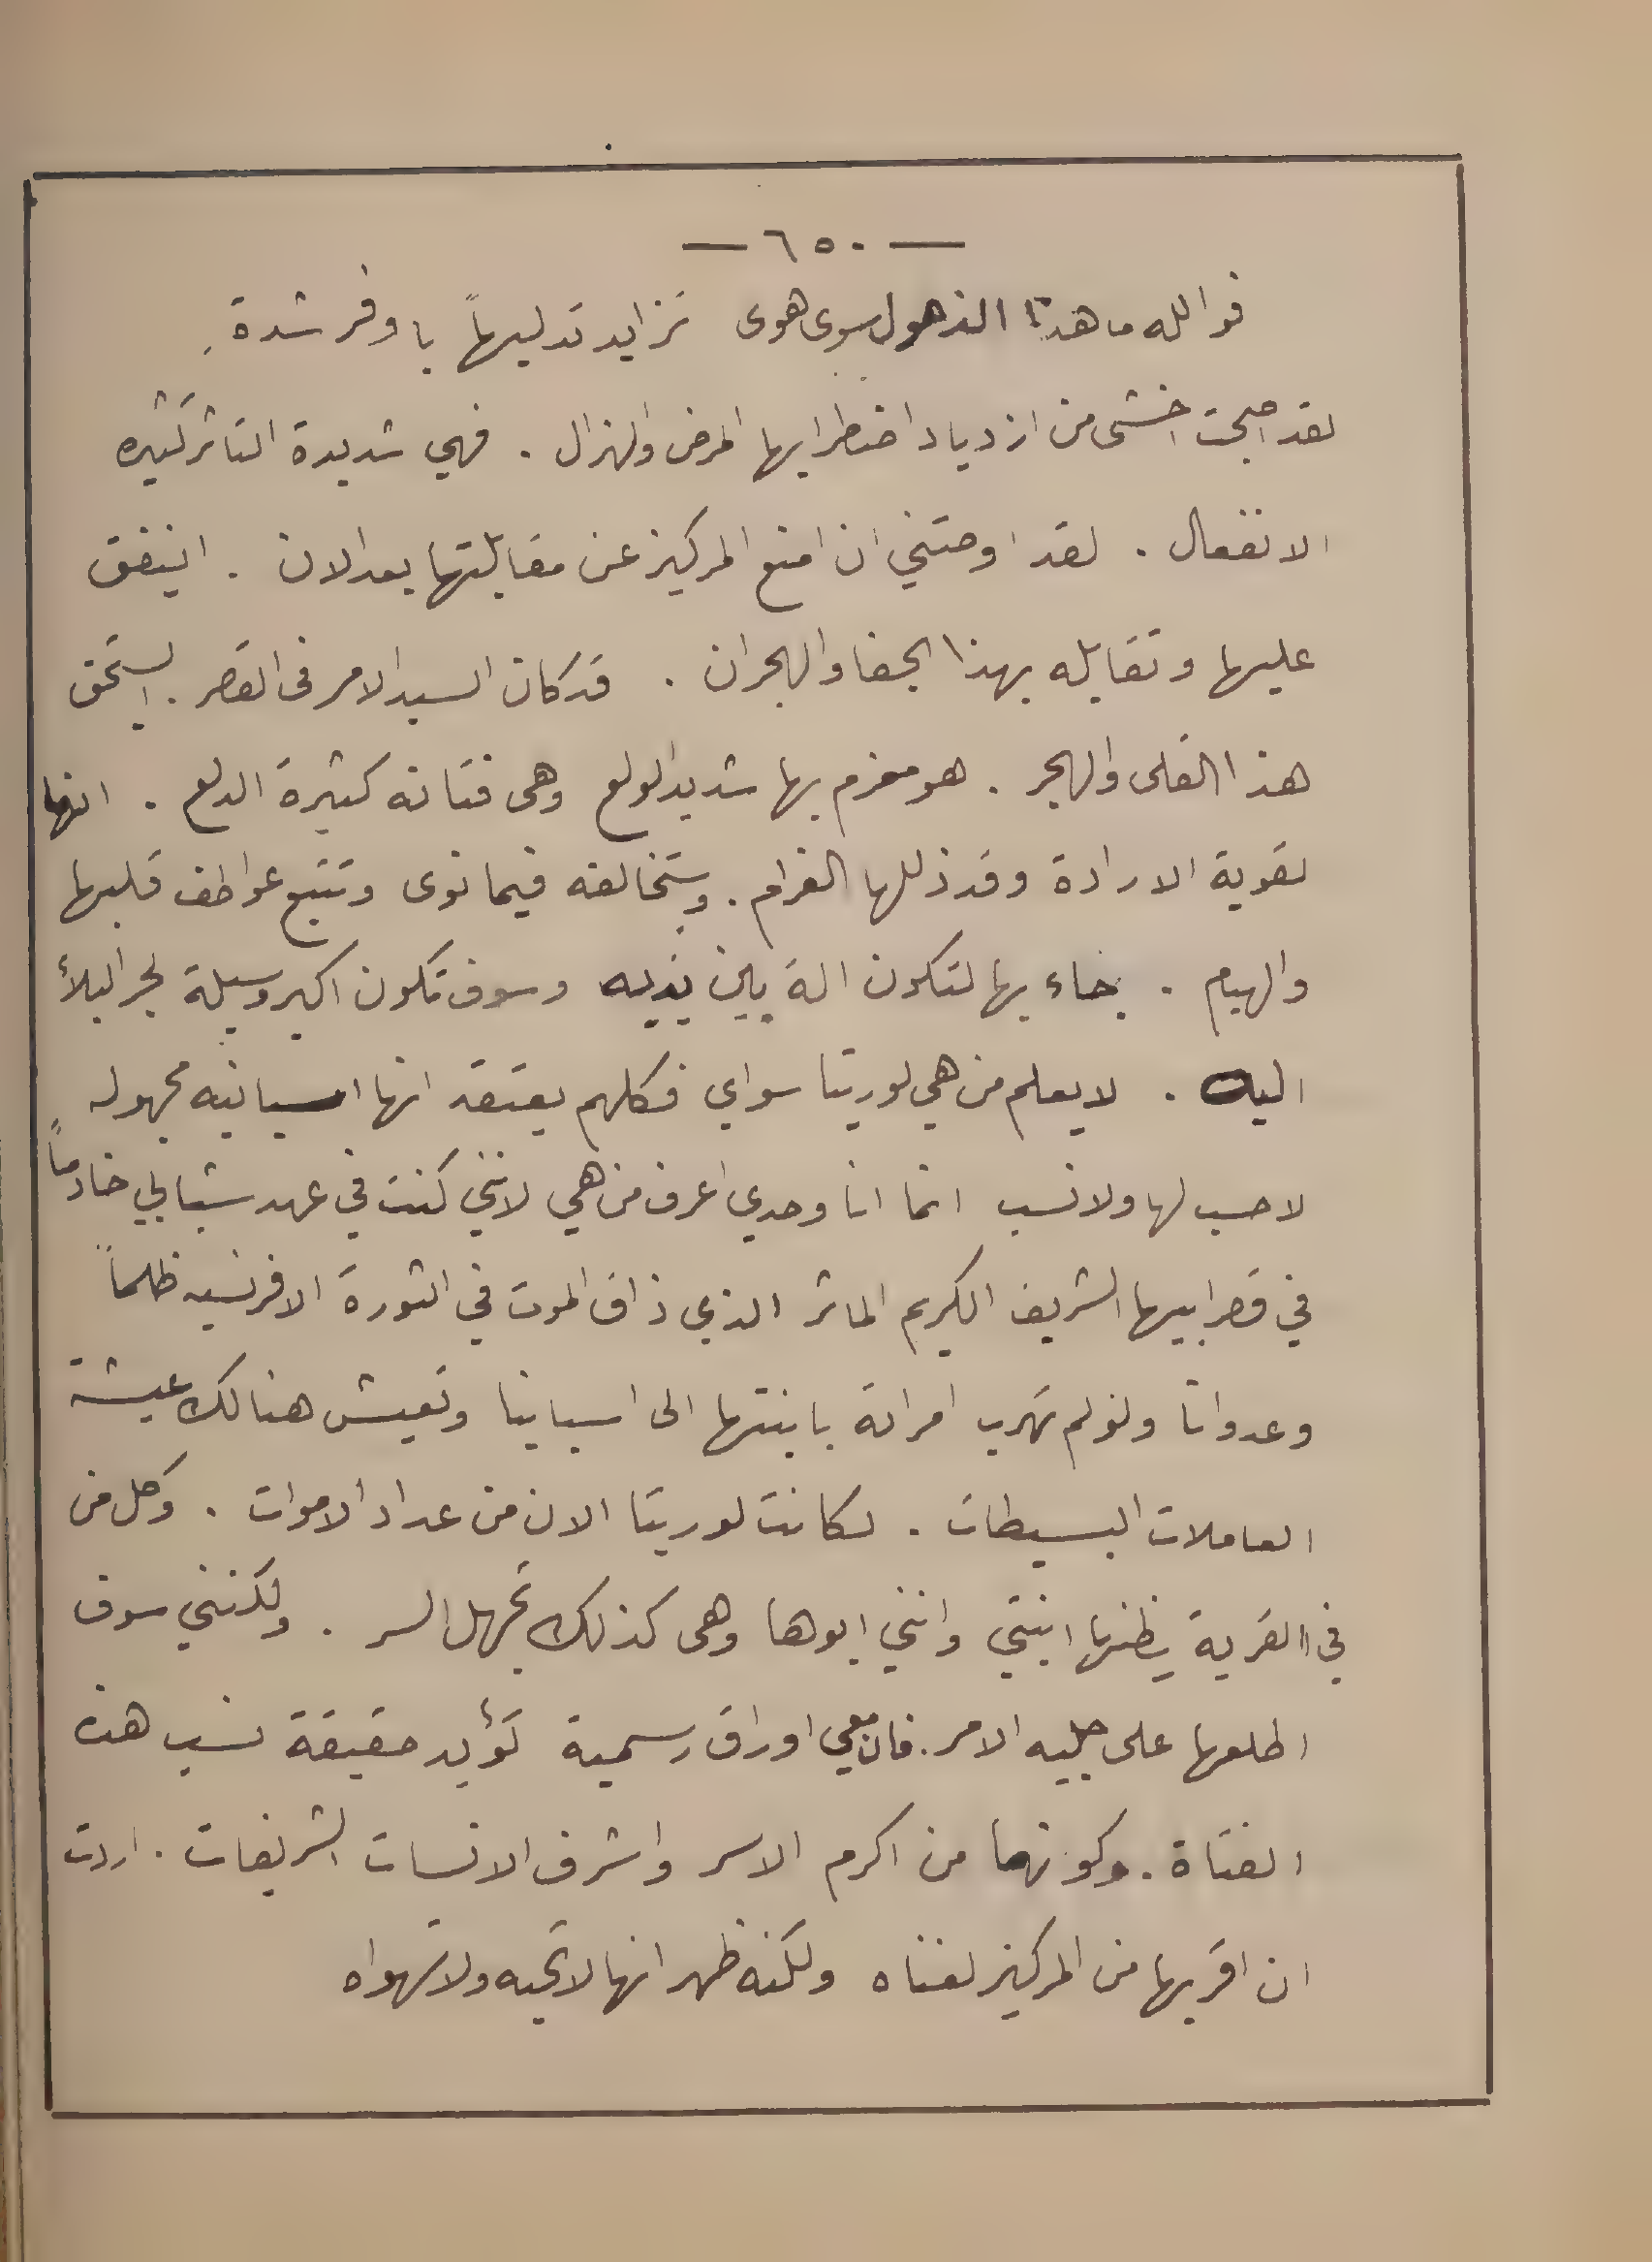 — ٦٥٠ —
فوالله ما هذا الذهول سوى هوى تزايد تدليهاً باوفر شدة
لقد اصبحت اخشى من ازدياد اضطرابها المرض والهزال . فهي شديدة التاثر كثيره
الانفعال . لقد اوصتني ان امنع المركيز عن مقابلتها بعد الان . اينفق
عليها وتقابله بهذا الجفا والهجران . قد كان السيد الامر فى القصر . ايستحق
هذا القلى والهجر . هو مغرم بها شديد الولع وهى فتانه كثيرة الدلع . انها
لقوية الارادة وقد ذللها الغرام . وستخالفه فيما نوى وتتبع عواطف قلبها
والهيام . جاء بها لتكون الة بين يديه وسوف تكون اكبر وسيلة لجر البلأ
اليه . لا يعلم من هي لوريتا سواي فكلهم يعتقد انها اسبانيه مجهوله
لا حسب لها ولا نسب انما انا وحدي اعرف من هي لانني كنت في عهد شبابي خادماً
في قصر ابيها الشريف الكريم الماثر الذي ذاق الموت في الثورة الافرنسيه ظلماً
وعدوانا ولو لم تهرب امراته بابنتها الى اسبانيا وتعيش هنالك عيشة
العاملات البسيطات . لكانت لوريتا الان من عداد الاموات . وكل من
في القرية يظنها ابنتي وانني ابوها وهى كذلك تجهل السر . ولكنني سوف
اطلعها على جليه الامر . فان معي اوراق رسمية تؤيد حقيقة نسب هذه
الفتاة . وكونها من اكرم الاسر واشرف الانسات الشريفات . اردت
ان اقربها من المركيز لغناه ولكنه ظهر انها لا تحبه ولا تهواه